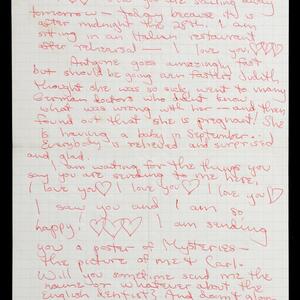 you are sailing away
tomorrow — today because it is
after midnight the 28th. I am
sitting in an Italian restaurant
after rehearsal — I love you ♡♡♡
Antigone goes amazingly fast
but should be going even faster. Judith
thought she was so sick, went to many
German doctors who didn't know
what was wrong with her — and then
found out that she is pregnant! She
is having a baby in September..
Everybody is relieved and surprised
and glad.
I am waiting for the things you
say you are sending to me here,
I love you ♡ I love you ♡ I love you ♡
I saw you and I am so
happy! ♡♡♡ I am sending
you a poster of Mysteries —
the picture of me & Carl.
Will you sometime send me the
name or whatever about the
English dentist? And